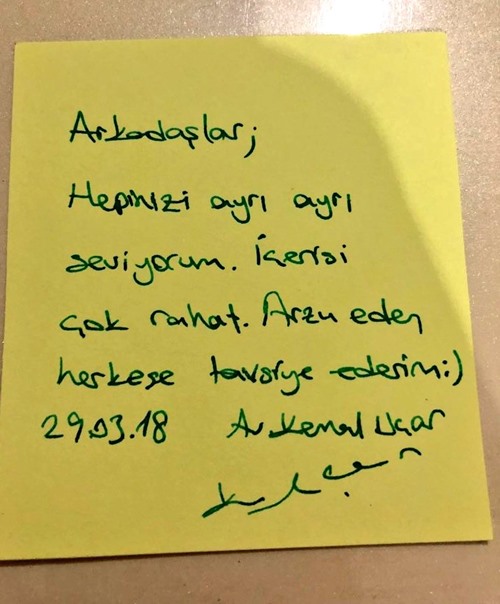 Arkadaşlar;
Hepinizi ayrı ayrı
seviyorum. İçerisi
çok rahat. Arzu eden
herkese tavsiye ederim:)
29.03.18 Av. Kemal Uçar